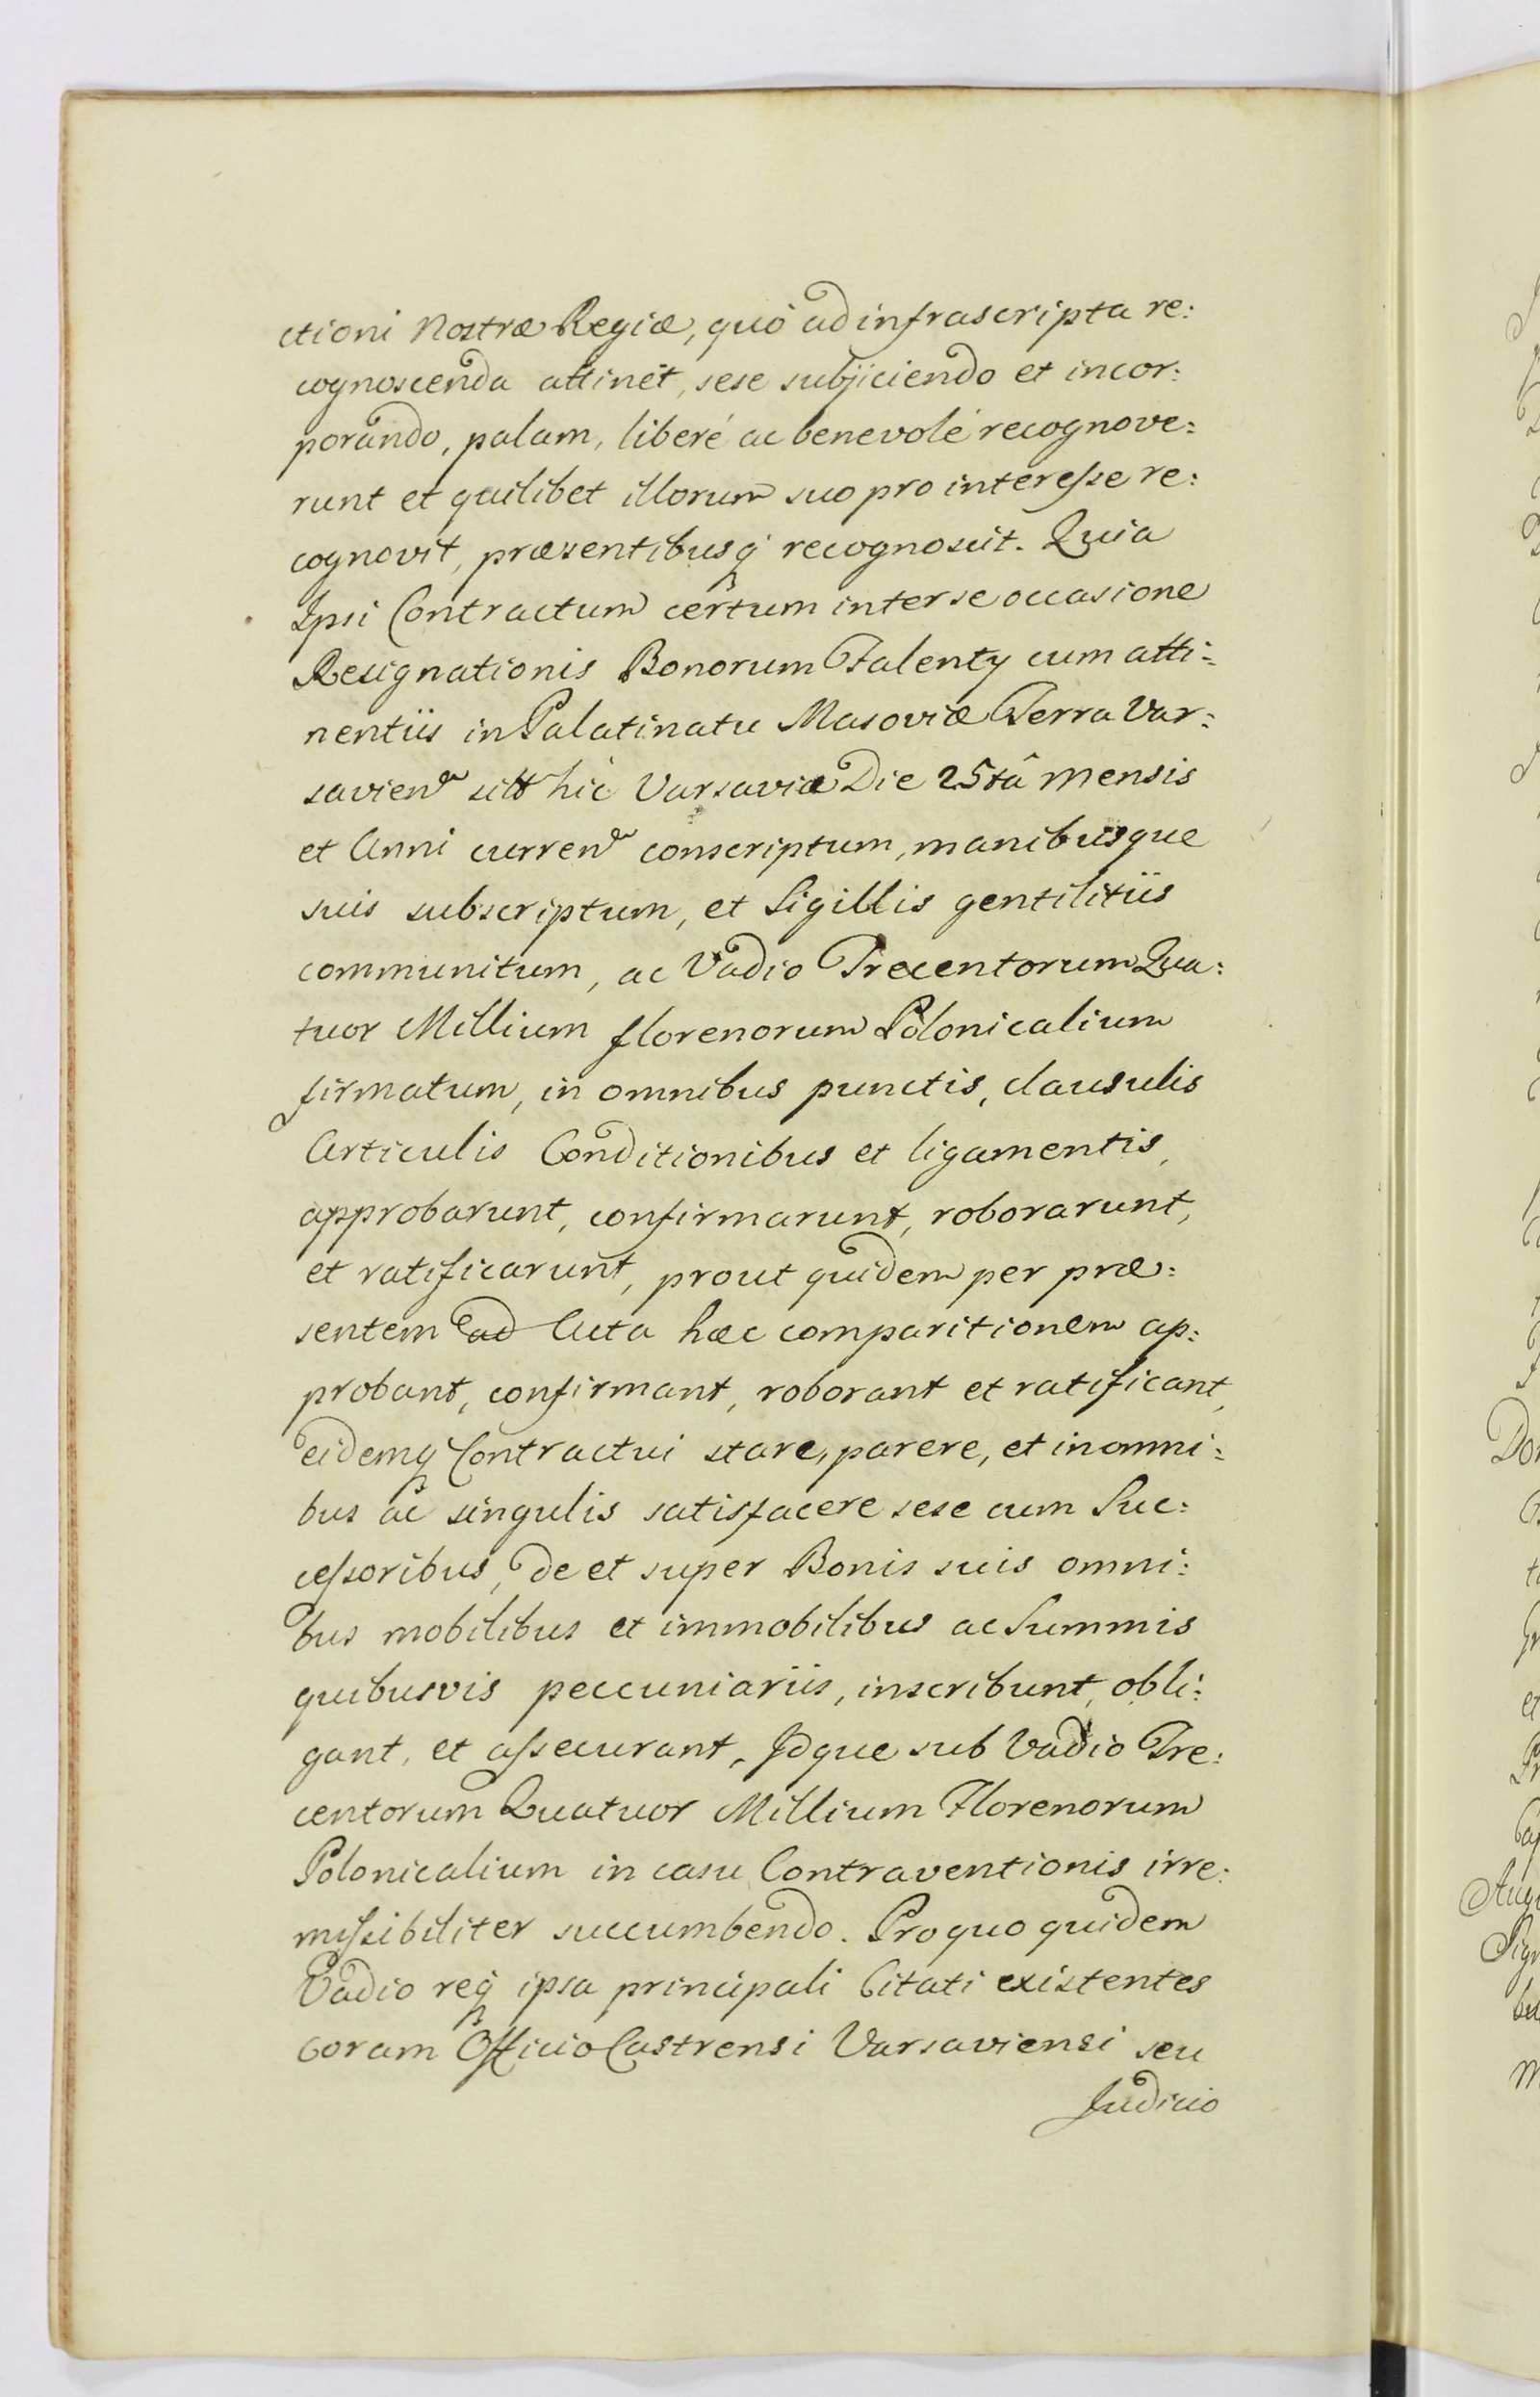 ctioni Nostræ Regiæ, quó ad infrascripta re:
cognoscenda attinet, sese subjiciendo et incor:
porando, palam, liberé ac benevolé recognove:
runt et quilibet illorum suo pro interesse re:
cognovit, præsentibusq́ recognoscit. Quia
Ipsi Contractum certum inter se occasione
Resignationis Bonorum Falenty cum atti:
nentiis in Palatinatu Masoviæ Terra Var:
savien̄ sitt hic Varsaviæ Die 25tâ Mensis
et Anni curren̄ conscriptum, manibusque
suis subscriptum, et Sigillis gentilitiis
communitum, ac Vadio Trecentorum Qua:
tuor Millium florenorum Polonicalium
firmatum, in omnibus punctis, clausulis
Articulis Conditionibus et ligamentis,
approbarunt, confirmarunt, roborarunt,
et ratificarunt, prout quidem per præ:
sentem ad Acta hæc comparitionem ap:
probant, confirmant, roborant et ratificant,
eidemq́ Contractui stare, parere, et in omni:
bus ac singulis satisfacere sese cum Suc:
cessoribus, de et super Bonis suis omni:
bus mobilibus et immobilibus ac Summis
quibusvis peccuniariis, inscribunt, obli:
gant, et assecurant, Idque sub Vadio Tre:
centorum Quatuor Millium Florenorum
Polonicalium in casu Contraventionis irre:
missibiliter succumbendo. Pro quo quidem
Vadio req́ ipsa principali Citati existentes
coram Officio Castrensi Varsaviensi seu
Judicio